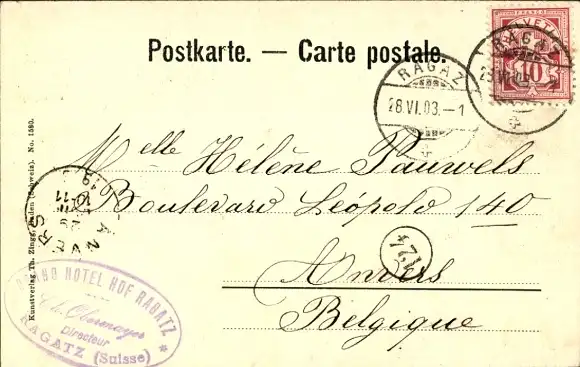 Postkarte. — Carte postale.
HELVETIA
FRANCO
10
RAGAZ
RAGAZ
28.VI.03.–1
Melle Hélène Pauwels
Boulevard Léopold 140
Anvers
Belgique
ANVERS
10-11
29
GRAND HOTEL HOF RAGATZ
Directeur
RAGATZ (Suisse)
Kunstverlag Th. Zingg, Baden (Schweiz). No. 1580.